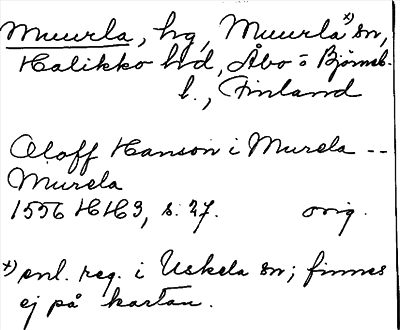 Muurla, hg, Muurla x) sn,
Halikko hd, Åbo o Björneb.
l., Finland
Oloff Hanson i Murela --
Murela
1556 HH3, s. 27. orig.
x) enl. reg. i Uskela sn; finnes
ej på kartan.